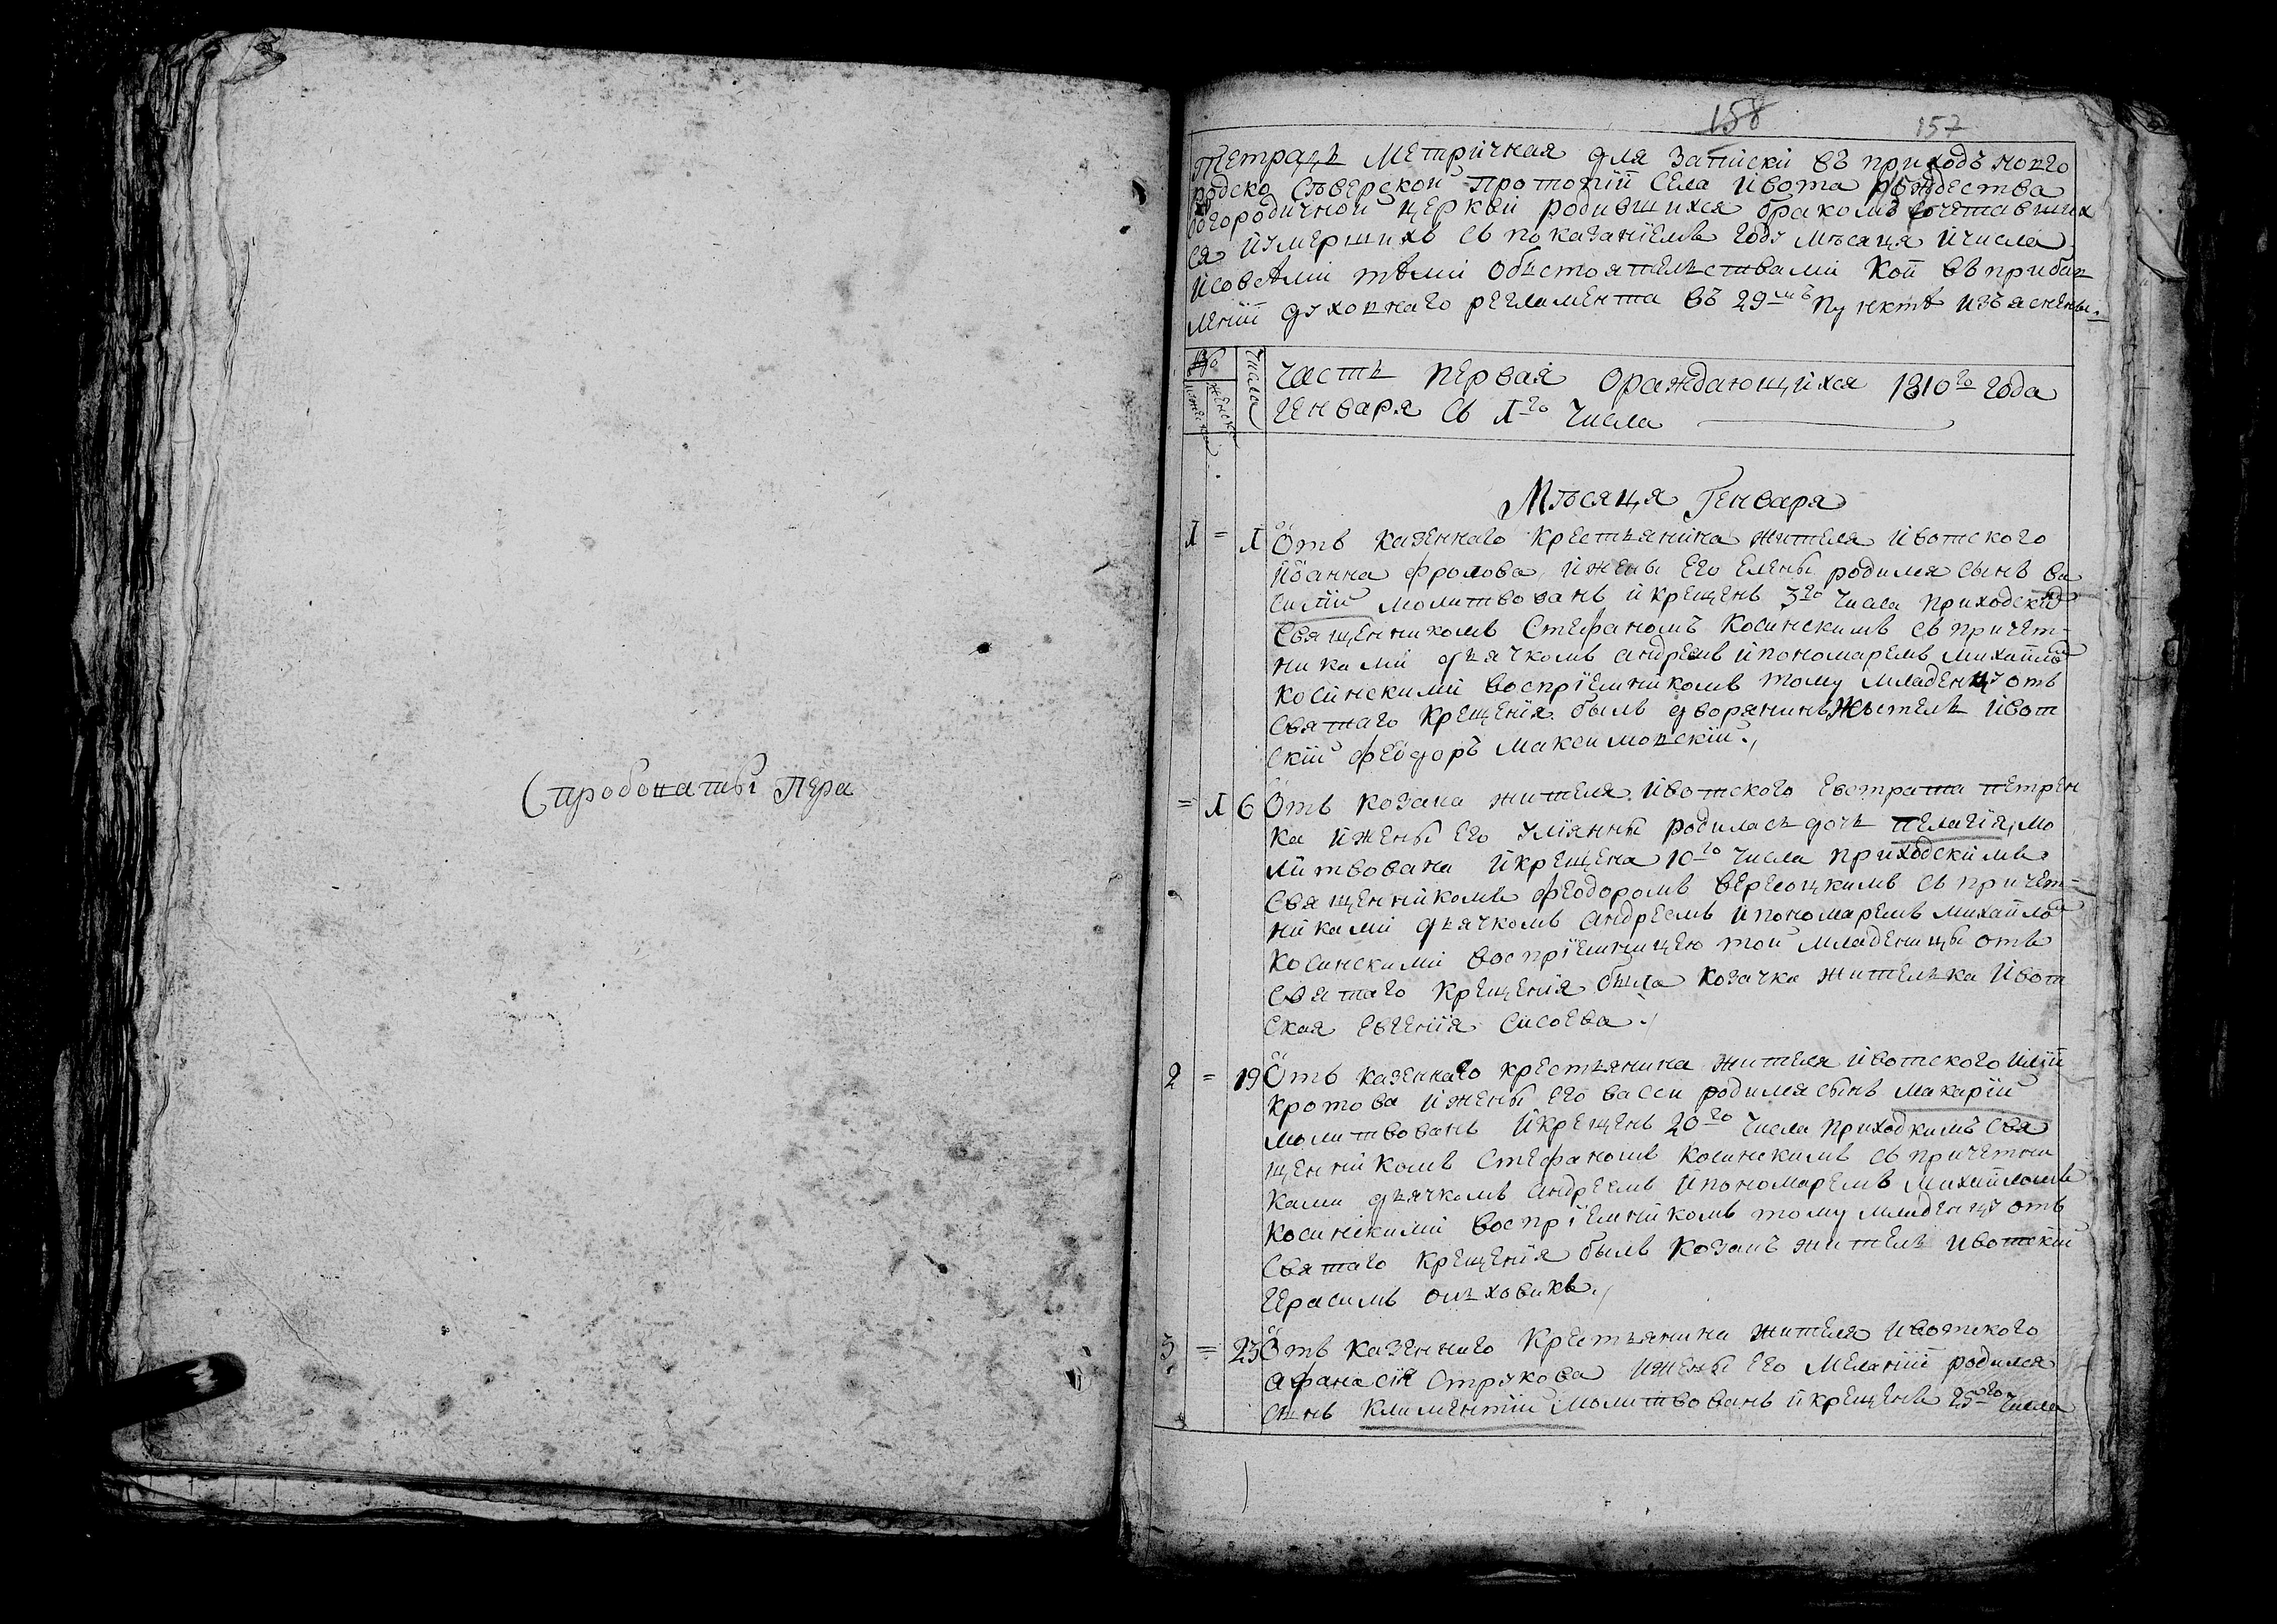 Спробовати Пера
158 157
Тетрадь Метричная для Записки въ приходъ новго
родско Сѣверской Протопіи Села Ивота рождества
богородичной церкви родившихся бракомъ сочетавших
ся и умершихъ съ показаніемъ году мѣсяця и числа
и совсѣми тѣми обстоятельствами кои въ прибав
леніи духовнаго регламента въ 29мъ пунктѣ изъяснены.
Числа
Часть первая о раждающихся 1810го года
Генваря съ 1го Числа
Мѣсяця Генваря
1 = 1 Отъ казеннаго крестьянина жителя ивотского
Иоанна фролова, и жены его Елены родился сынъ ва
силій молитвованъ и крещенъ 3го числа приходскім
Священникомъ Стефаномъ Косинскимъ съ причет-
никами дьячкомъ андреемъ и пономаремъ михайлом
косинскими воспріемникомъ тому младенцу отъ
святаго крещенія былъ дворянинъ житель ивот
скій феодоръ максимовскій.,
= 1 6 Отъ козака жителя ивотского евстрата петрен
ка и жены его уліянны родилась дочь пелагія, мо
литвована и крещена 10го числа приходскимъ
Священникомъ феодоромъ вересоцкимъ съ причет-
никами дьячкомъ андреемъ и пономаремъ михайлом
косинскими воспріемницею той младеницы отъ
святаго крещенія была козачка жителька ивот
ская евгенія сисоева.,
2 = 19 Отъ казеннаго крестьянина жителя ивотского иліи
кротова и жены его васси родился сынъ макарій
молитвованъ и крещенъ 20го числа приходкимъ свя
щенникомъ Стефаномъ косинскимъ съ причетни
ками дьячкомъ андреемъ и пономаремъ михайломъ
косинскими воспріемникомъ тому младенцу отъ
святаго крещенія былъ козакъ житель ивотскій
герасимъ ольховикъ.,
3 = 23 Отъ казеннаго крестьянина жителя ивотского
афанасія струкова и жены его меланіи родился
сынъ климентій молитвованъ и крещенъ 25го числа